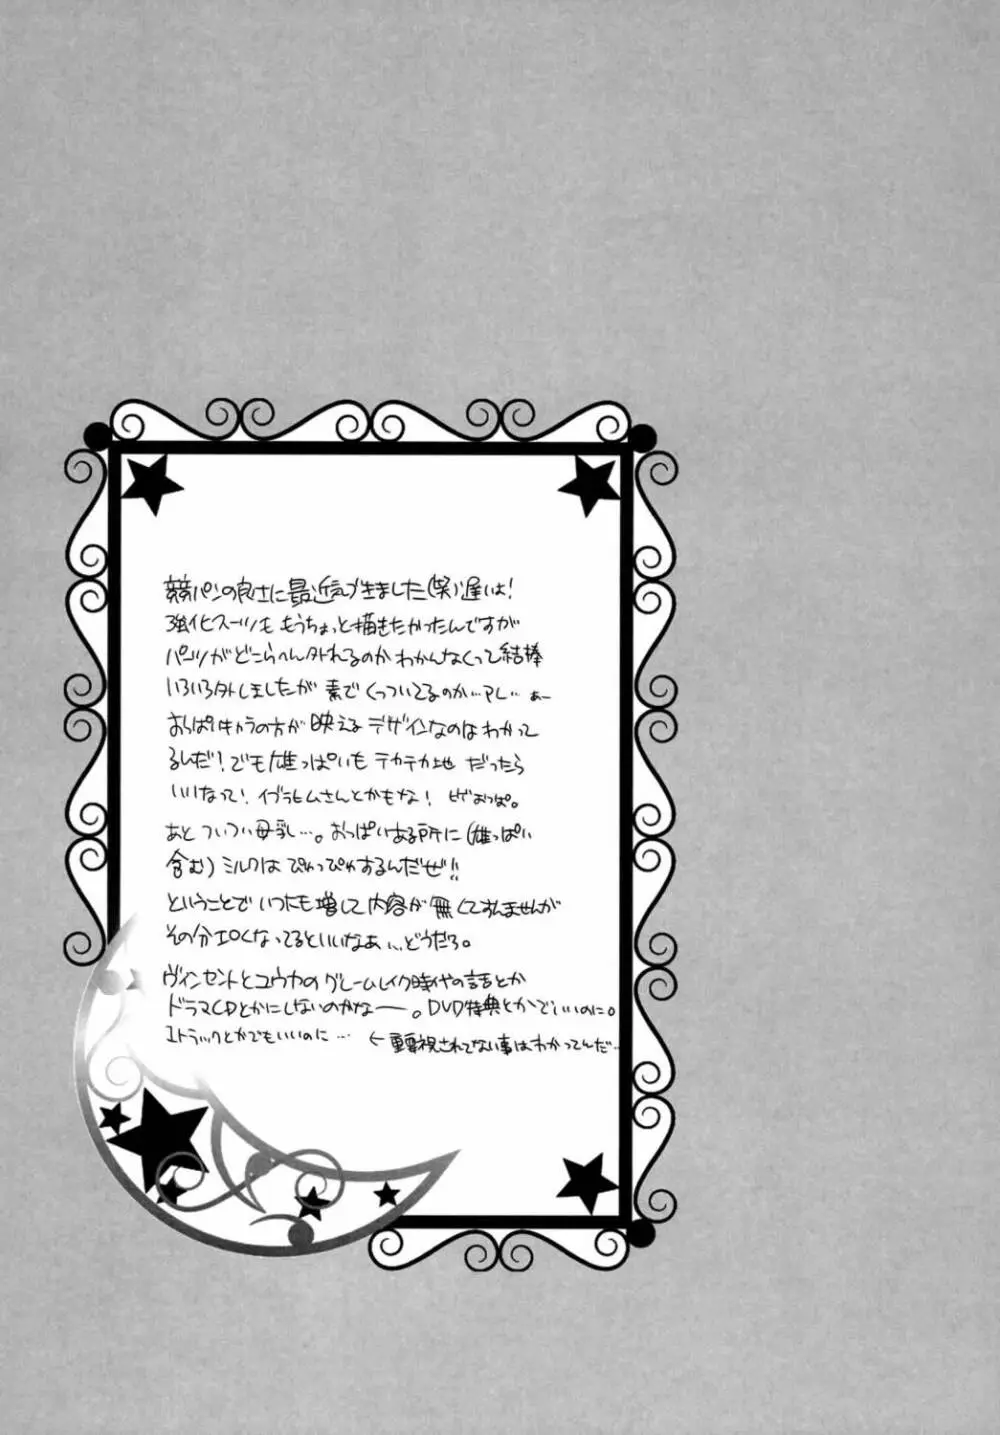 競パンの良さに最近気づきました(笑)遅いよ!
強化スーツも もうちょっと描きたかったんですが
パンツがどこらへん外れるのか わかんなくって結構
いろいろ外しましたが 素でくっついてるのか…アレ…
おっぱいキャラの方が 映える デザインなのはわかって
るんだ!でも雄っぱいも テカテカ地 だったら
いいなって! イブラヒムさんとかもな! ヒゲおっぱ。
あと ついつい母乳…。おっぱいある所に(雄っぱい
含む)ミルクは ぴゅっぴゅするんだぜ!!
ということで いつにも増して 内容が 無くてすんませんが
その分エロくなってるといいなぁ…どうだろ。
ヴィンセントとユウカの グレームレイク時代の話とか
ドラマCDとかにしないのかなー。DVD特典とかでいいのに。
1トラックとかでもいいのに… ←重要視されてない事はわかってんだ…